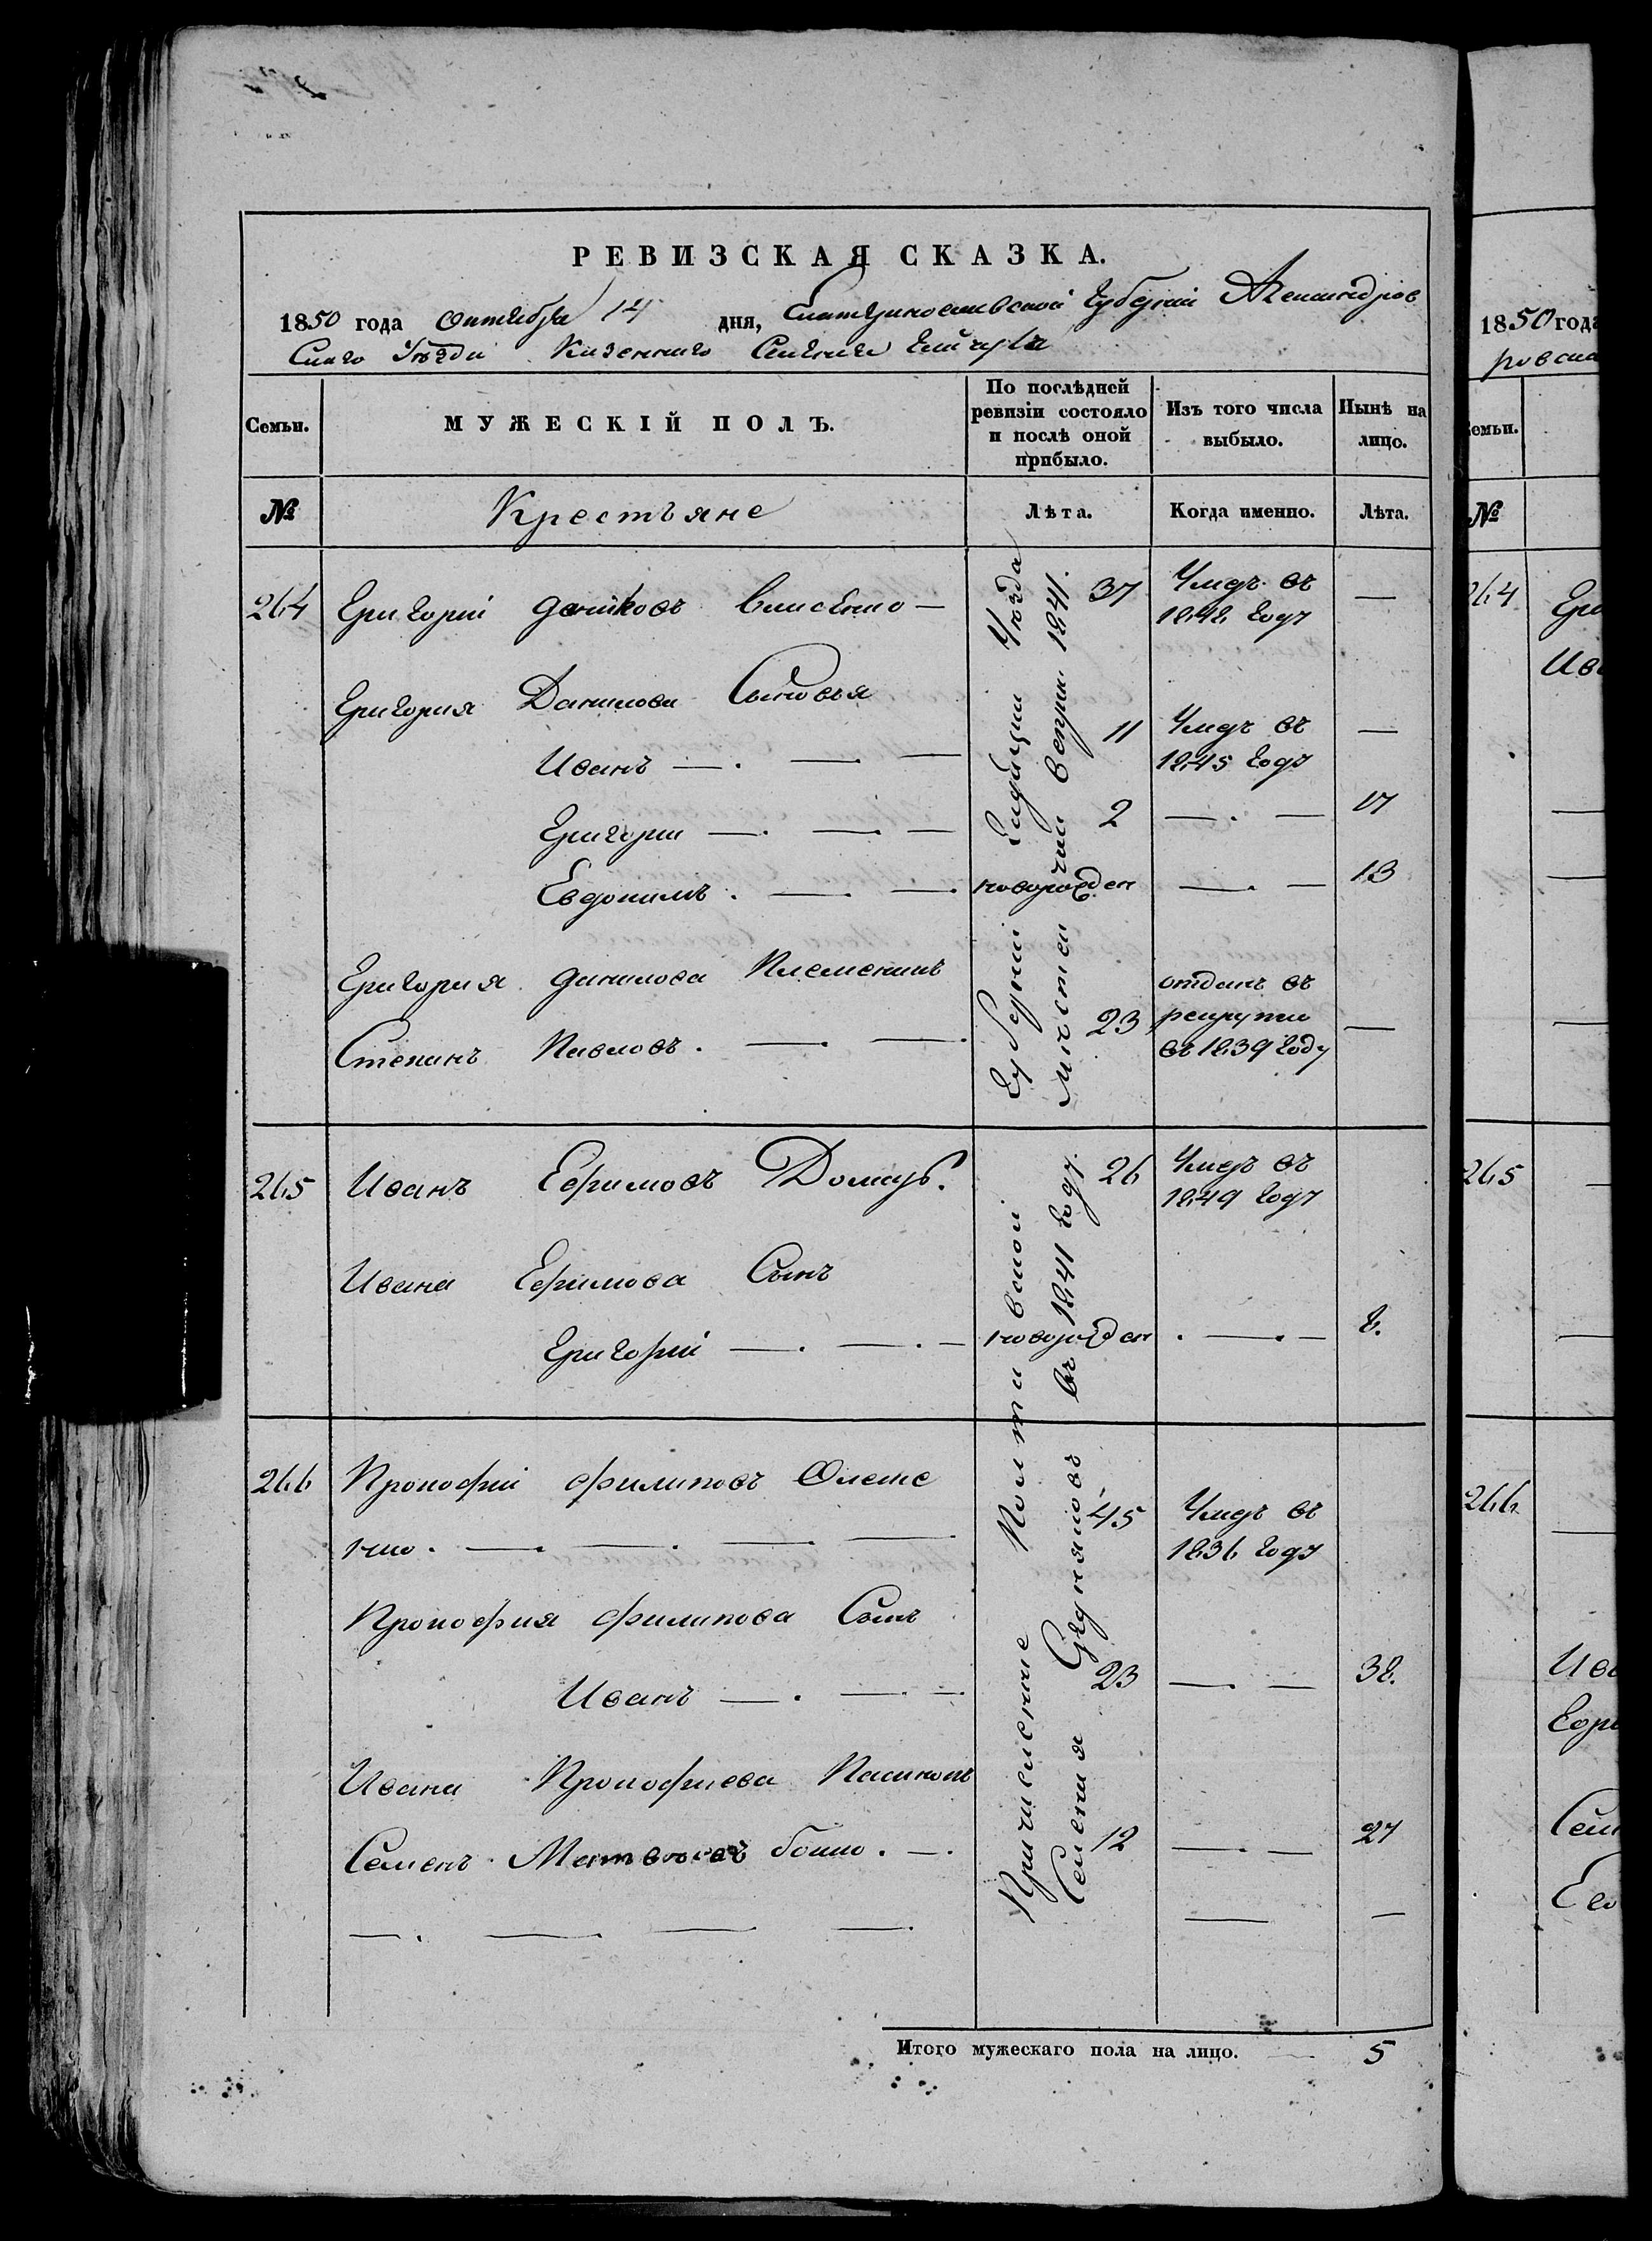 РЕВИЗСКАЯ СКАЗКА.
1850 года Октября 14 дня, Екатеринославской Губернии Александров
скаго Уѣзда Казеннаго Селения Гайчура
Семьи. МУЖЕСКІЙ ПОЛЪ. По послѣдней ревизіи состояло и послѣ оной прибыло. Изъ того числа выбыло. Нынѣ на лицо.
№ Крестъяне Лѣта. Когда именно. Лѣта.
264 Григорій Даниловъ 37 Умеръ въ 1848 году —
Григория Данилова Сыновья
Иванъ 11 Умеръ въ 1845 году —
Григори 2 — 17
Евдокимъ новорожден — 13
Григория Данилова Племеникъ
Степанъ Павловъ 23 отданъ въ рекруты въ 1839 году —
265 Иванъ Ефимовъ 26 Умеръ въ 1849 году
Ивана Ефимова Сынъ
Григорій новорожден — 8.
266 Прокофий Филиповъ Олеше
нко. 45 Умеръ въ 1836 году
Прокофия Филипова Сынъ
Иванъ 23 — 38.
Ивана Прокофиева Пасынокъ
Семенъ Матвѣевъ Бойко. 12 — 27
Причисленные Полтавской Губернии Гадяцкии Уезда
Селения въ 1841 году. 1841.
Итого мужескаго пола на лицо. — 5
1850 года
ровска
Семьи.
№
264 Гри
Ива
265
266
Ива
Сем